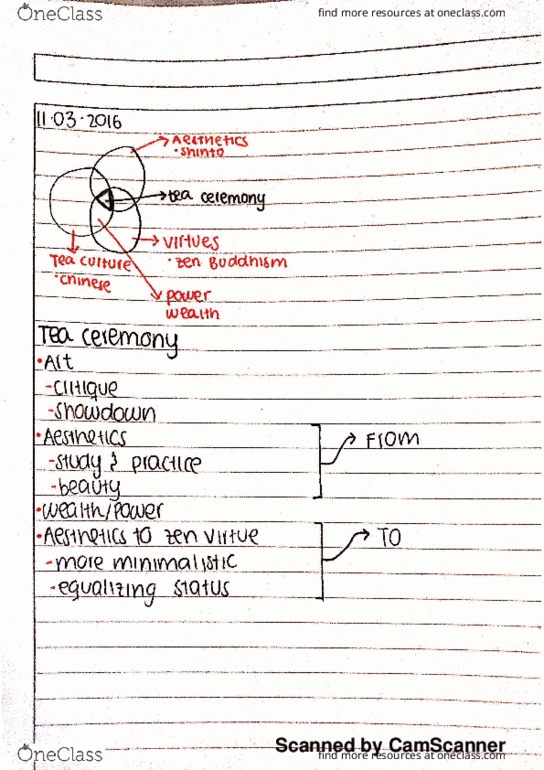 OneClass
find more resources at oneclass.com
11·03·2016
Aesthetics
·shinto
tea ceremony
virtues
·zen Buddhism
Tea culture
·chinese
power
wealth
Tea ceremony
·Art
-critique
-showdown
·Aesthetics
FROM
-study & practice
-beauty
·wealth/power
·Aesthetics to zen virtue
TO
-more minimalistic
-equalizing status
Scanned by CamScanner
OneClass
find more resources at oneclass.com